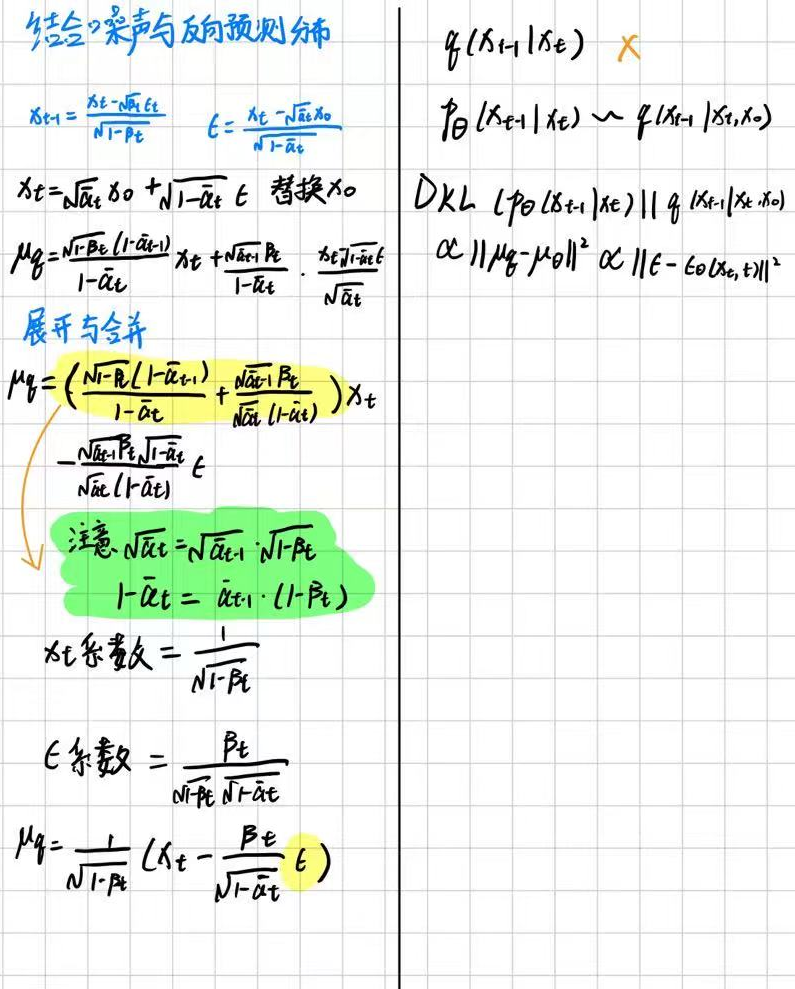 结合噪声与反向预测分布
x_{t-1} = \frac{x_t - \sqrt{β_t} ε_t}{\sqrt{1-β_t}}   ε = \frac{x_t - \sqrt{ᾱ_t} x_0}{\sqrt{1-ᾱ_t}}
x_t = \sqrt{ᾱ_t} x_0 + \sqrt{1-ᾱ_t} ε 替换x_0
μ_q = \frac{\sqrt{1-β_t}(1-ᾱ_{t-1})}{1-ᾱ_t} x_t + \frac{\sqrt{ᾱ_{t-1}} β_t}{1-ᾱ_t} · \frac{x_t \sqrt{1-ᾱ_t} ε}{\sqrt{ᾱ_t}}
展开与合并
μ_q = (\frac{\sqrt{1-β_t}(1-ᾱ_{t-1})}{1-ᾱ_t} + \frac{\sqrt{ᾱ_{t-1}} β_t}{\sqrt{ᾱ_t}(1-ᾱ_t)}) x_t
- \frac{\sqrt{ᾱ_{t-1}} β_t \sqrt{1-ᾱ_t}}{\sqrt{ᾱ_t}(1-ᾱ_t)} ε
注意 \sqrt{ᾱ_t} = \sqrt{ᾱ_{t-1}} · \sqrt{1-β_t}
1-ᾱ_t = ᾱ_{t-1} · (1-β_t)
x_t系数 = \frac{1}{\sqrt{1-β_t}}
ε系数 = \frac{β_t}{\sqrt{1-β_t} \sqrt{1-ᾱ_t}}
μ_q = \frac{1}{\sqrt{1-β_t}} (x_t - \frac{β_t}{\sqrt{1-ᾱ_t}} ε)
q(x_{t-1}|x_t) ×
p_θ(x_{t-1}|x_t) ~ q(x_{t-1}|x_t,x_0)
DKL (p_θ(x_{t-1}|x_t) || q(x_{t-1}|x_t,x_0)
∝ ||μ_q-μ_θ||² ∝ ||ε-ε_θ(x_t,t)||²